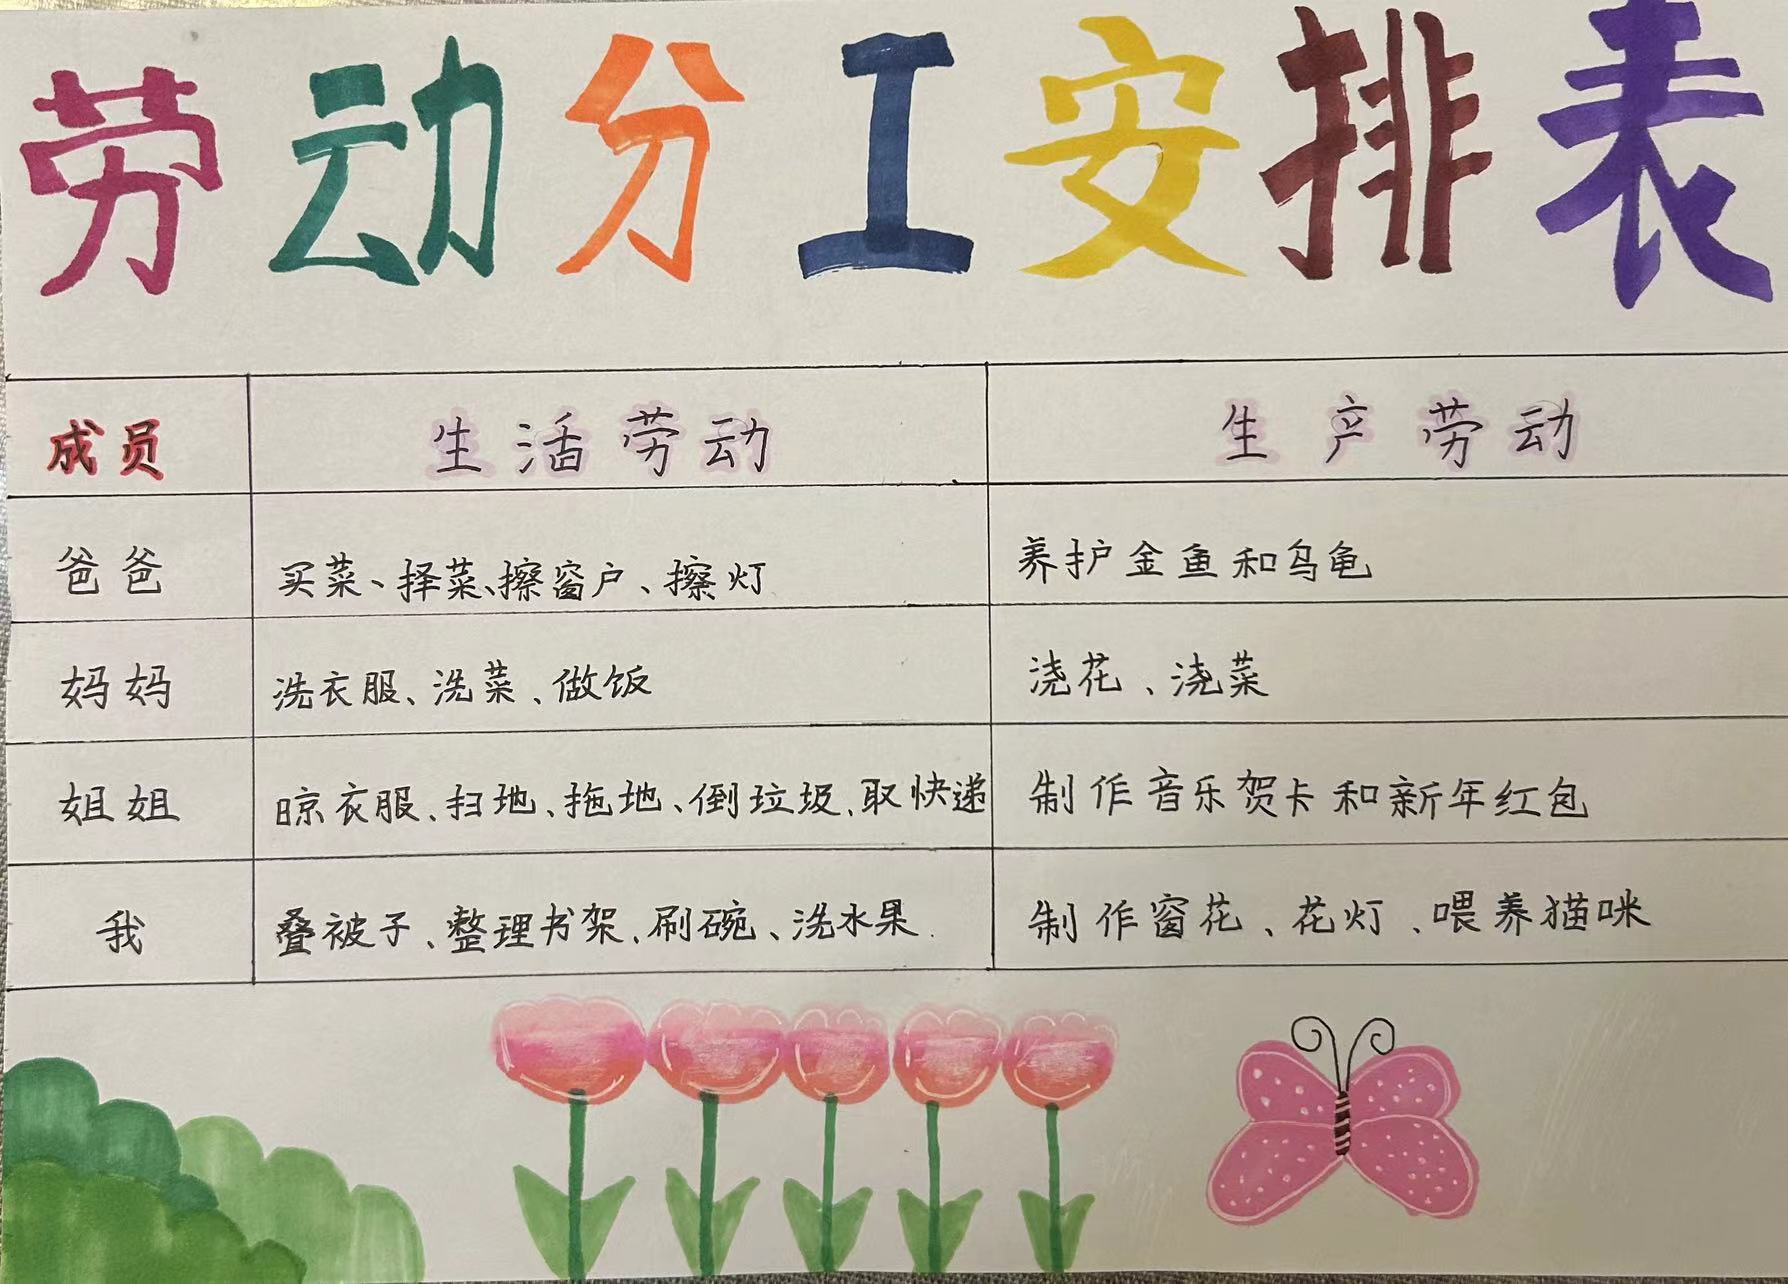 劳动分工安排表
成员 生活劳动 生产劳动
爸爸 买菜、择菜、擦窗户、擦灯 养护金鱼和乌龟
妈妈 洗衣服、洗菜、做饭 浇花、浇菜
姐姐 晾衣服、扫地、拖地、倒垃圾、取快递 制作音乐贺卡和新年红包
我 叠被子、整理书架、刷碗、洗水果 制作窗花、花灯、喂养猫咪